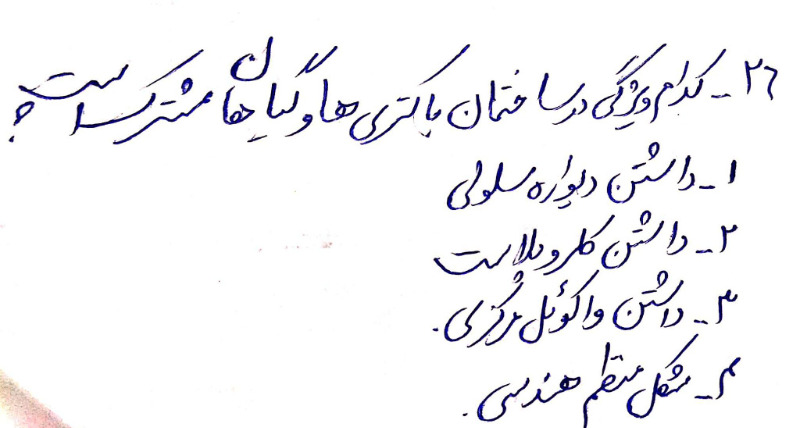 ۲۶ - کدام ویژگی در ساختمان باکتری ها و گیاهان مشترک است؟
۱ - داشتن دیواره سلولی
۲ - داشتن کلروپلاست
۳ - داشتن واکوئل مرکزی.
۴ - شکل منظم هندسی.